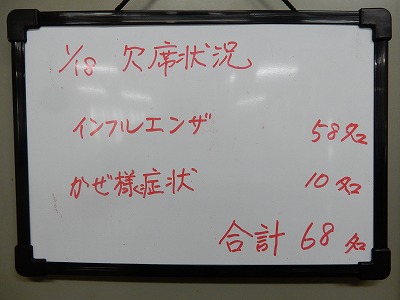 1/18 欠席状況
インフルエンザ 58名
かぜ様症状 10名
合計 68名